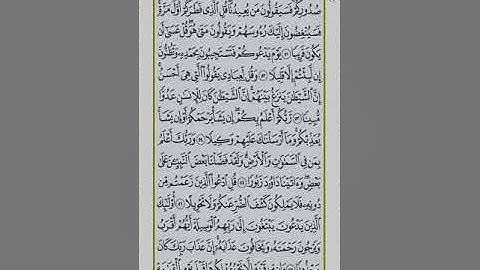 صُدُورِكُمْ ۚ فَسَيَقُولُونَ مَن يُعِيدُنَا ۖ قُلِ ٱلَّذِى فَطَرَكُمْ أَوَّلَ مَرَّةٍ ۚ
فَسَيُنْغِضُونَ إِلَيْكَ رُءُوسَهُمْ وَيَقُولُونَ مَتَىٰ هُوَ ۖ قُلْ عَسَىٰٓ أَن
يَكُونَ قَرِيبًا ٥١ يَوْمَ يَدْعُوكُمْ فَتَسْتَجِيبُونَ بِحَمْدِهِۦ وَتَظُنُّونَ
إِن لَّبِثْتُمْ إِلَّا قَلِيلًا ٥٢ وَقُل لِّعِبَادِى يَقُولُوا۟ ٱلَّتِى هِىَ أَحْسَنُ ۚ
إِنَّ ٱلشَّيْطَٰنَ يَنزَغُ بَيْنَهُمْ ۚ إِنَّ ٱلشَّيْطَٰنَ كَانَ لِلْإِنسَٰنِ عَدُوًّا
مُّبِينًا ٥٣ رَّبُّكُمْ أَعْلَمُ بِكُمْ ۖ إِن يَشَأْ يَرْحَمْكُمْ أَوْ إِن يَشَأْ
يُعَذِّبْكُمْ ۚ وَمَآ أَرْسَلْنَٰكَ عَلَيْهِمْ وَكِيلًا ٥٤ وَرَبُّكَ أَعْلَمُ
بِمَن فِى ٱلسَّمَٰوَٰتِ وَٱلْأَرْضِ ۗ وَلَقَدْ فَضَّلْنَا بَعْضَ ٱلنَّبِيِّـۧنَ عَلَىٰ
بَعْضٍ ۖ وَءَاتَيْنَا دَاوُۥدَ زَبُورًا ٥٥ قُلِ ٱدْعُوا۟ ٱلَّذِينَ زَعَمْتُم مِّن
دُونِهِۦ فَلَا يَمْلِكُونَ كَشْفَ ٱلضُّرِّ عَنكُمْ وَلَا تَحْوِيلًا ٥٦ أُو۟لَٰٓئِكَ
ٱلَّذِينَ يَدْعُونَ يَبْتَغُونَ إِلَىٰ رَبِّهِمُ ٱلْوَسِيلَةَ أَيُّهُمْ أَقْرَبُ
وَيَرْجُونَ رَحْمَتَهُۥ وَيَخَافُونَ عَذَابَهُۥٓ ۚ إِنَّ عَذَابَ رَبِّكَ كَانَ